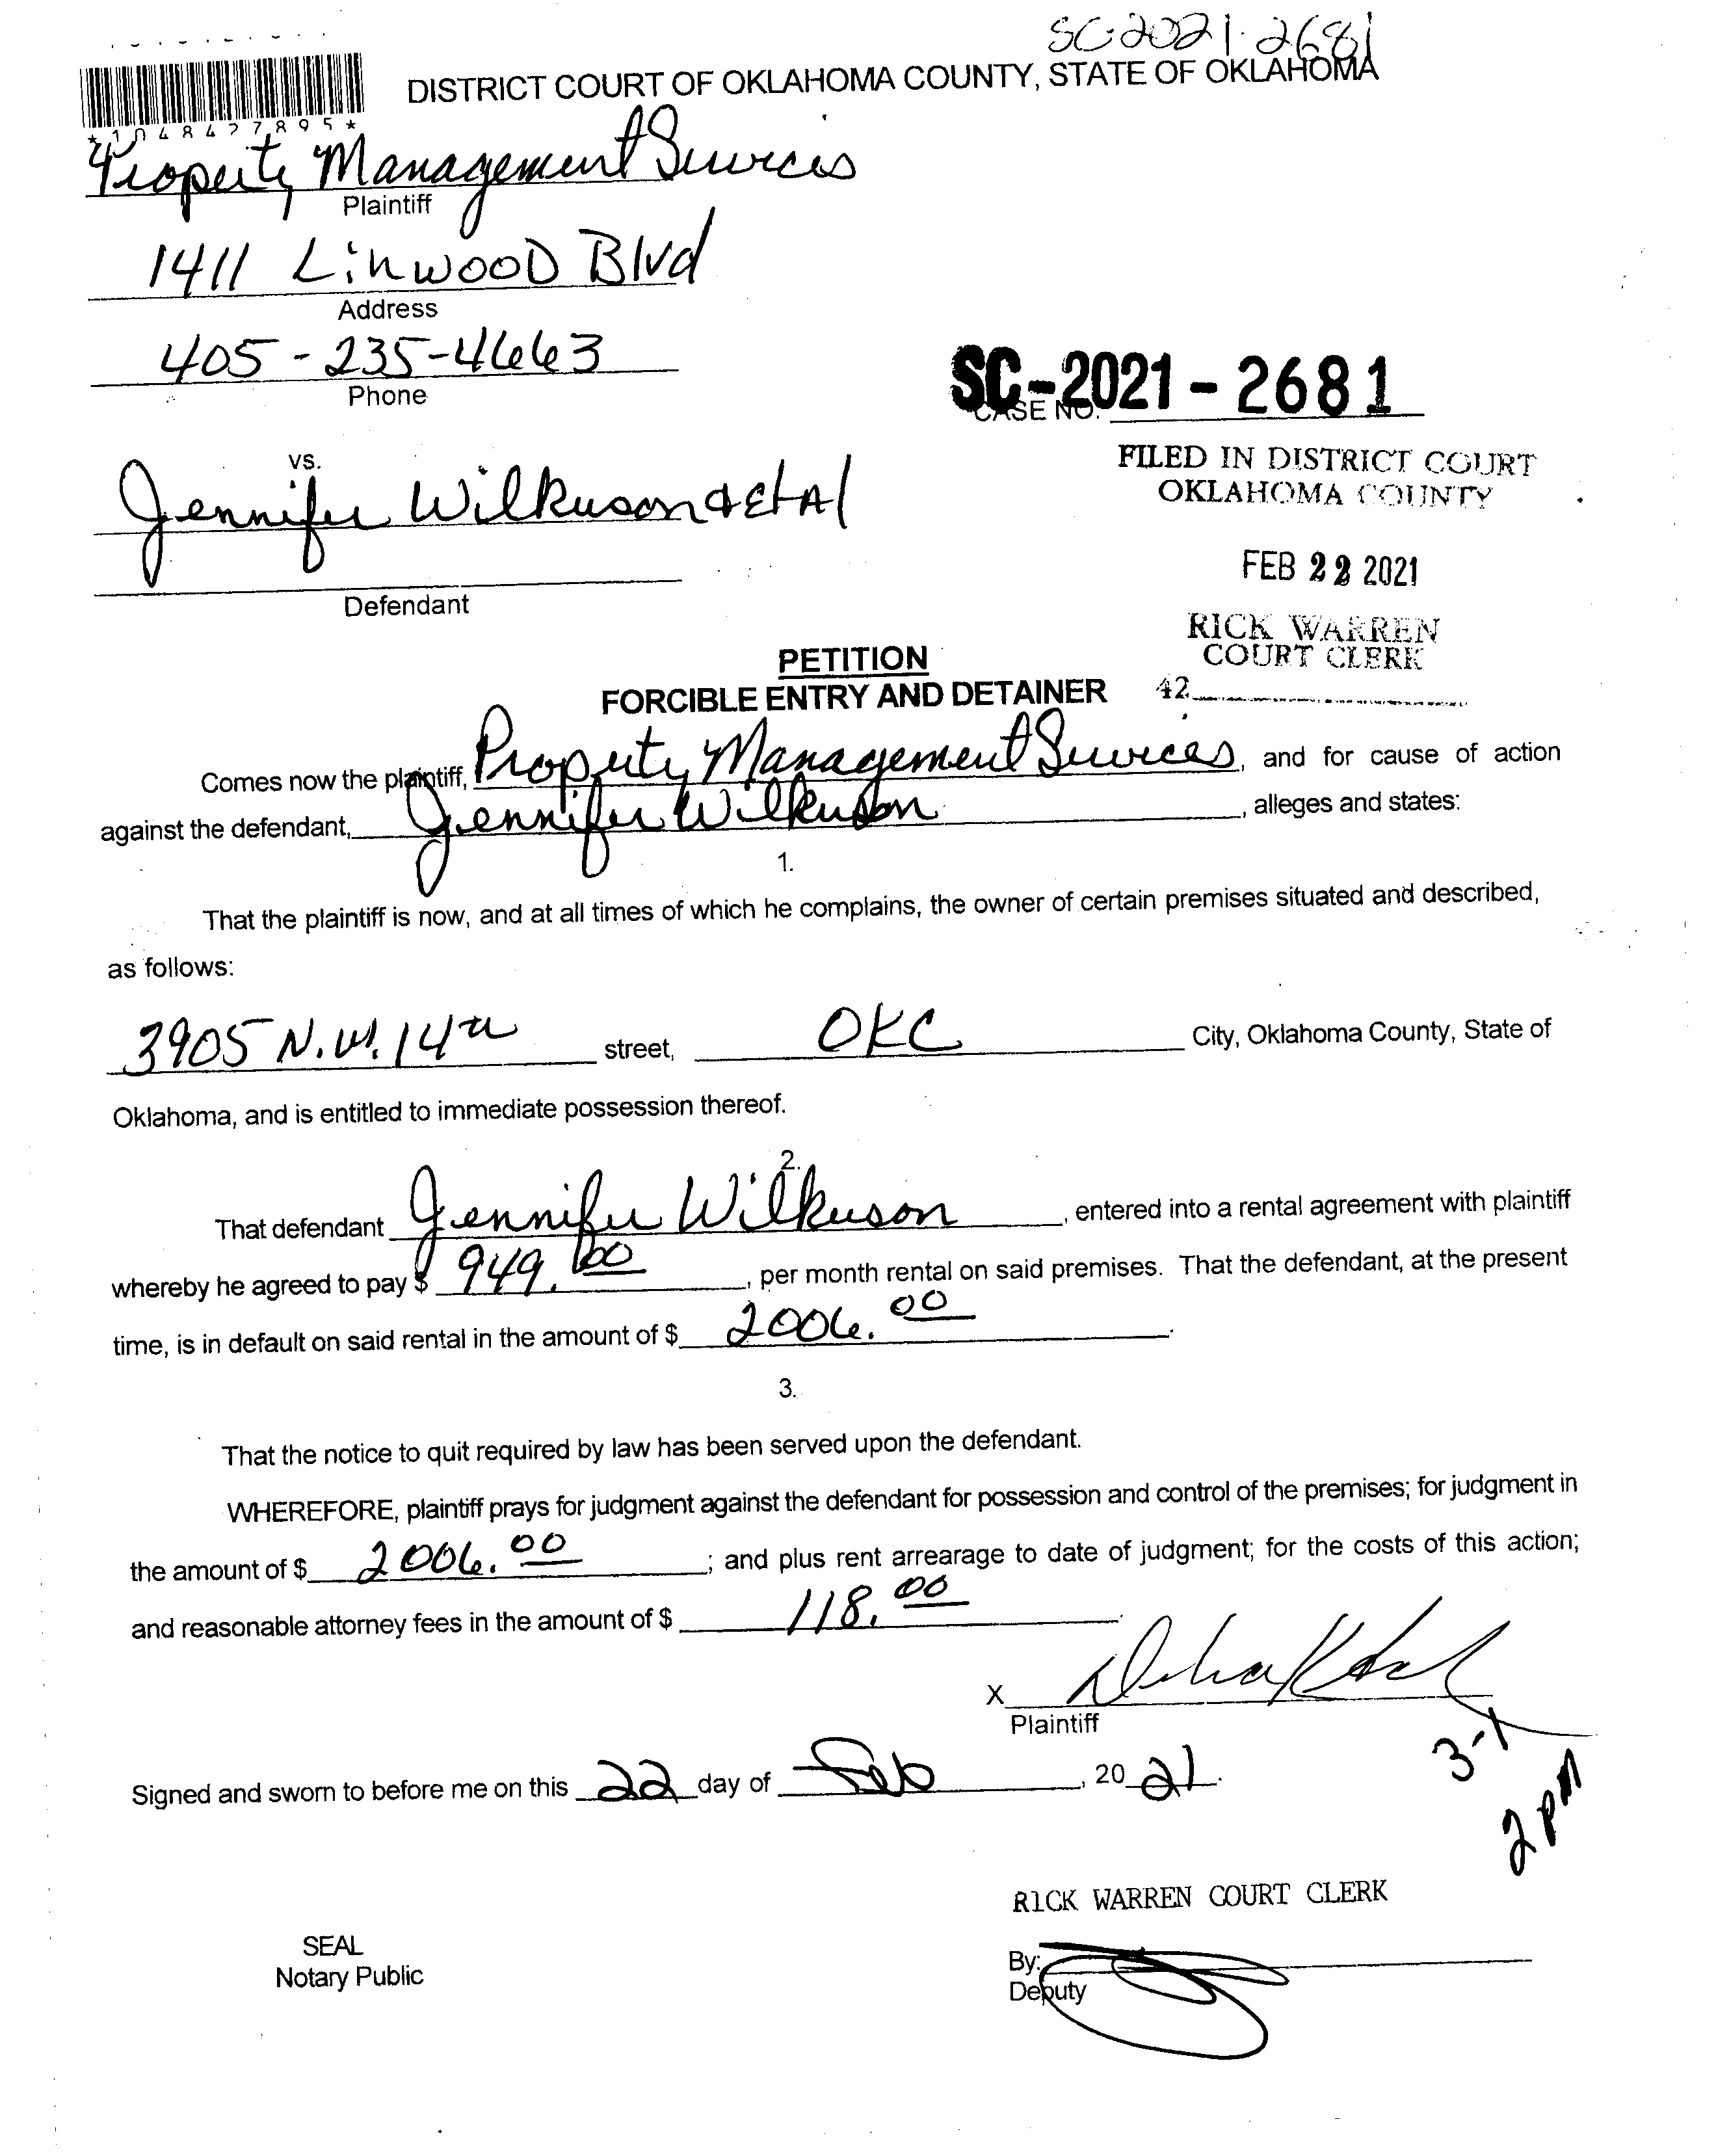 SC-2021-2681
DISTRICT COURT OF OKLAHOMA COUNTY, STATE OF OKLAHOMA
*1048427895*
Property Management Services
Plaintiff
1411 Linwood Blvd
Address
405-235-4663
Phone
SC-2021-2681
CASE NO.
vs.
Jennifer Wilkerson & Et Al
FILED IN DISTRICT COURT
OKLAHOMA COUNTY
FEB 22 2021
Defendant
RICK WARREN
COURT CLERK
42
PETITION
FORCIBLE ENTRY AND DETAINER
Comes now the plaintiff, Property Management Services, and for cause of action
against the defendant, Jennifer Wilkerson, alleges and states:
1.
That the plaintiff is now, and at all times of which he complains, the owner of certain premises situated and described,
as follows:
3905 N.W. 14th street, OKC City, Oklahoma County, State of
Oklahoma, and is entitled to immediate possession thereof.
2.
That defendant Jennifer Wilkerson, entered into a rental agreement with plaintiff
whereby he agreed to pay $ 949.00, per month rental on said premises. That the defendant, at the present
time, is in default on said rental in the amount of $ 2006.00.
3.
That the notice to quit required by law has been served upon the defendant.
WHEREFORE, plaintiff prays for judgment against the defendant for possession and control of the premises; for judgment in
the amount of $ 2006.00; and plus rent arrearage to date of judgment; for the costs of this action;
and reasonable attorney fees in the amount of $ 118.00.
X
Plaintiff
3-1
2 pm
Signed and sworn to before me on this 22 day of Feb, 2021.
RICK WARREN COURT CLERK
SEAL
Notary Public
By:
Deputy